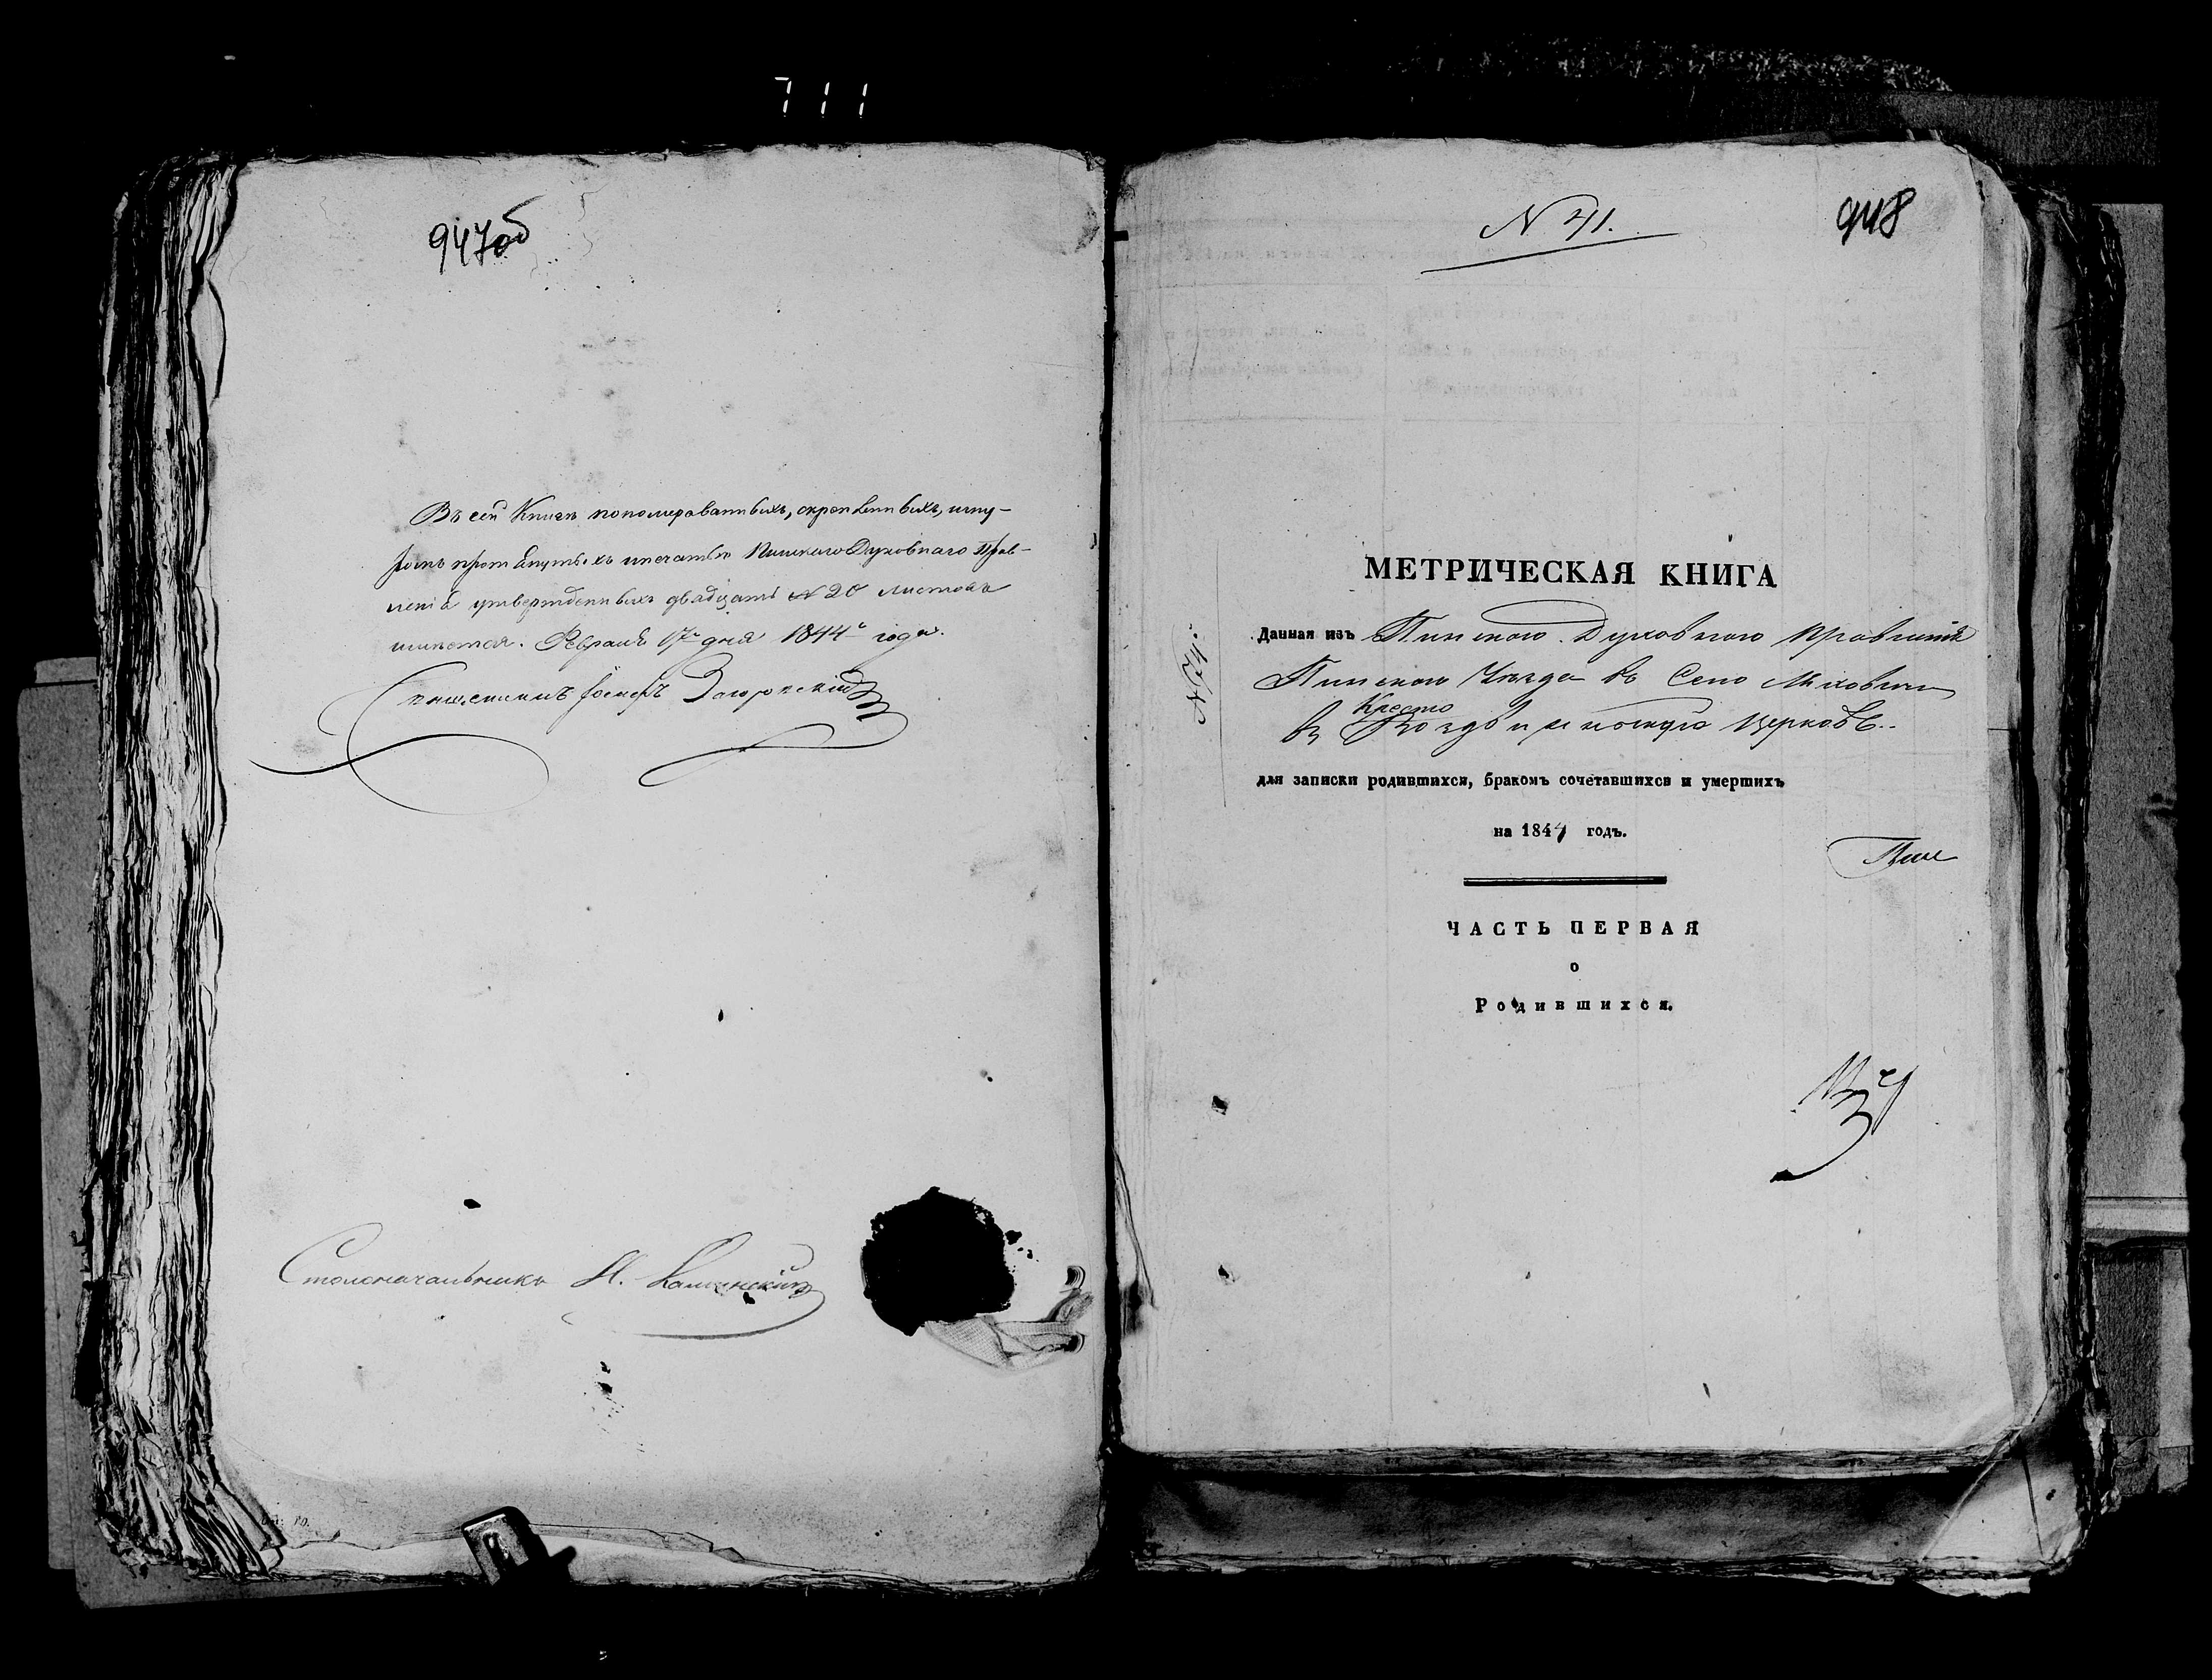 711
947об
Въ сей Книгѣ пономерованныхъ, скрепленныхъ, шну-
ромъ протянутыхъ и печатью Пинскаго Духовнаго Прав-
ленія утвержденныхъ двадцать N 20 листовъ
имѣется. Февраля 17 дня 1844 года.
Священникъ Іосифъ
Столоначальникъ Н.
N 41.
948
МЕТРИЧЕСКАЯ КНИГА
Данная изъ Пинскаго Духовнаго Правленія
Пинскаго Уѣзда въ Село Мховичи
Кресто
въ Воздвиженскую Церковь.
для записки родившихся, бракомъ сочетавшихся и умершихъ
на 1844 годъ.
Пин
ЧАСТЬ ПЕРВАЯ
о
Родившихся.